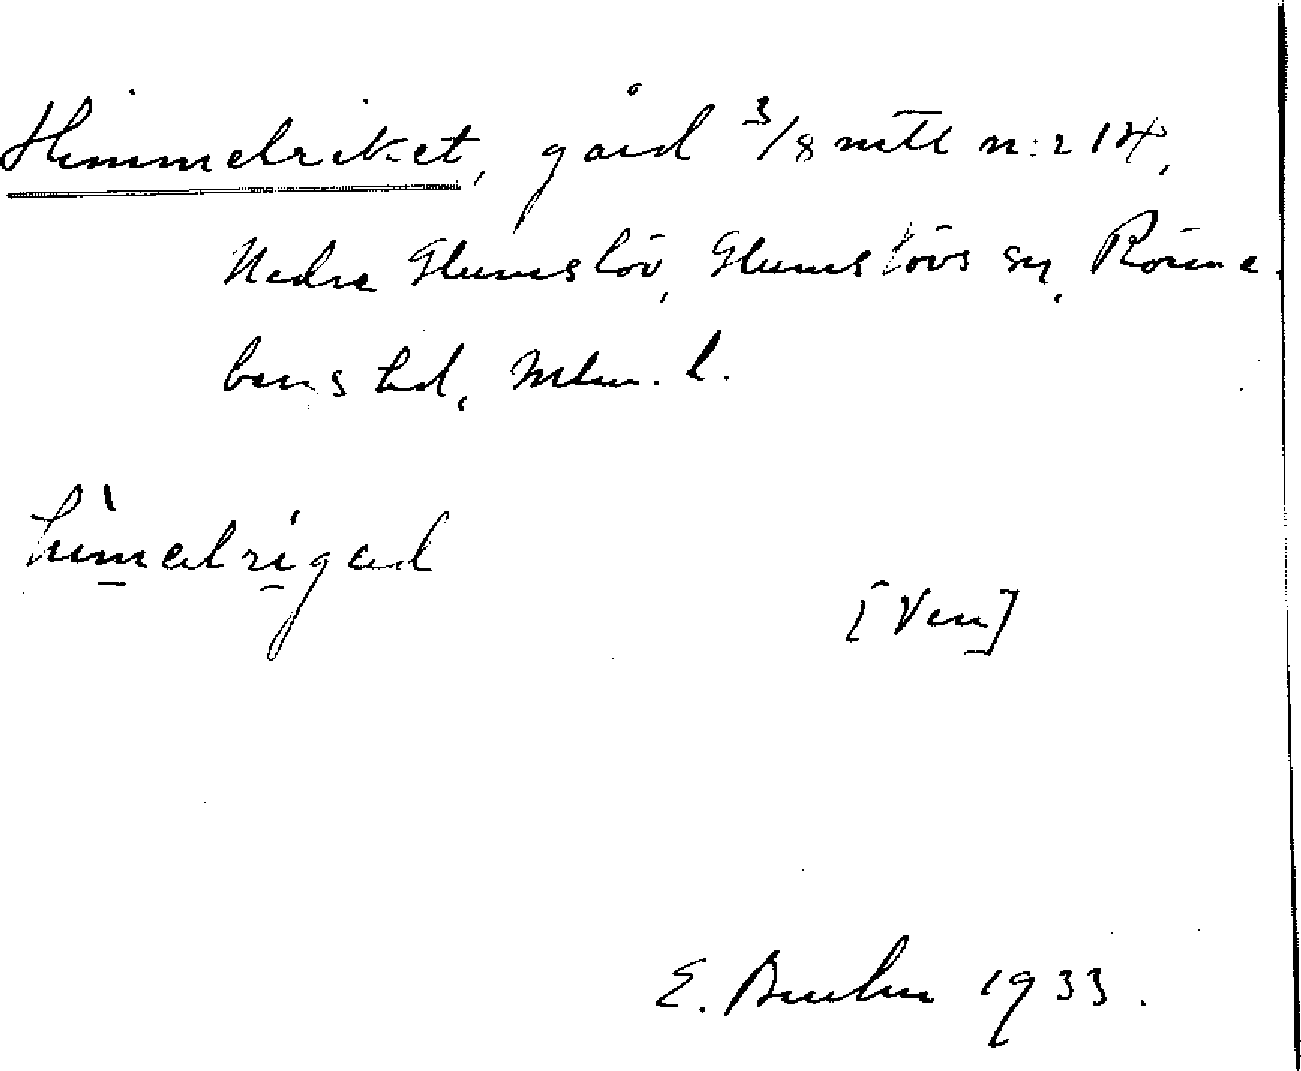 Himmelriket, gård 3/8 mtl n:r 14,
Nedre Glumslöv, Glumslövs sn, Rönne-
bergs hd, Mlm. l.
himalrigad
[Ven]
E. 1933.